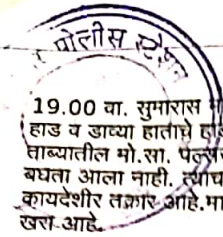 पोलीस स्टेशन
19.00 वा. सुमारास
हाड व डाव्या हाताचे
ताब्यातील मो.सा.
बघता आला नाही.
कायदेशीर तक्रार आहे.
खरा आहे.